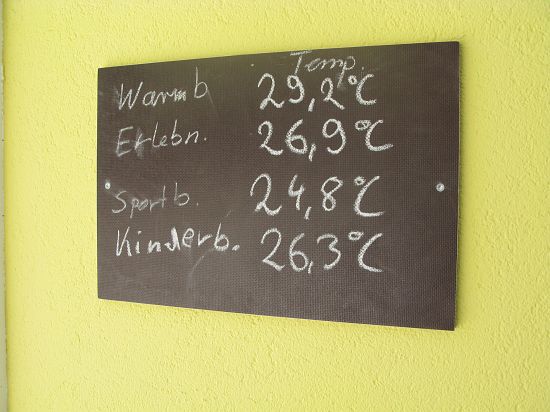 Temp.
Warmb 29,2°C
Erlebn. 26,9°C
Sportb. 24,8°C
Kinderb. 26,3°C